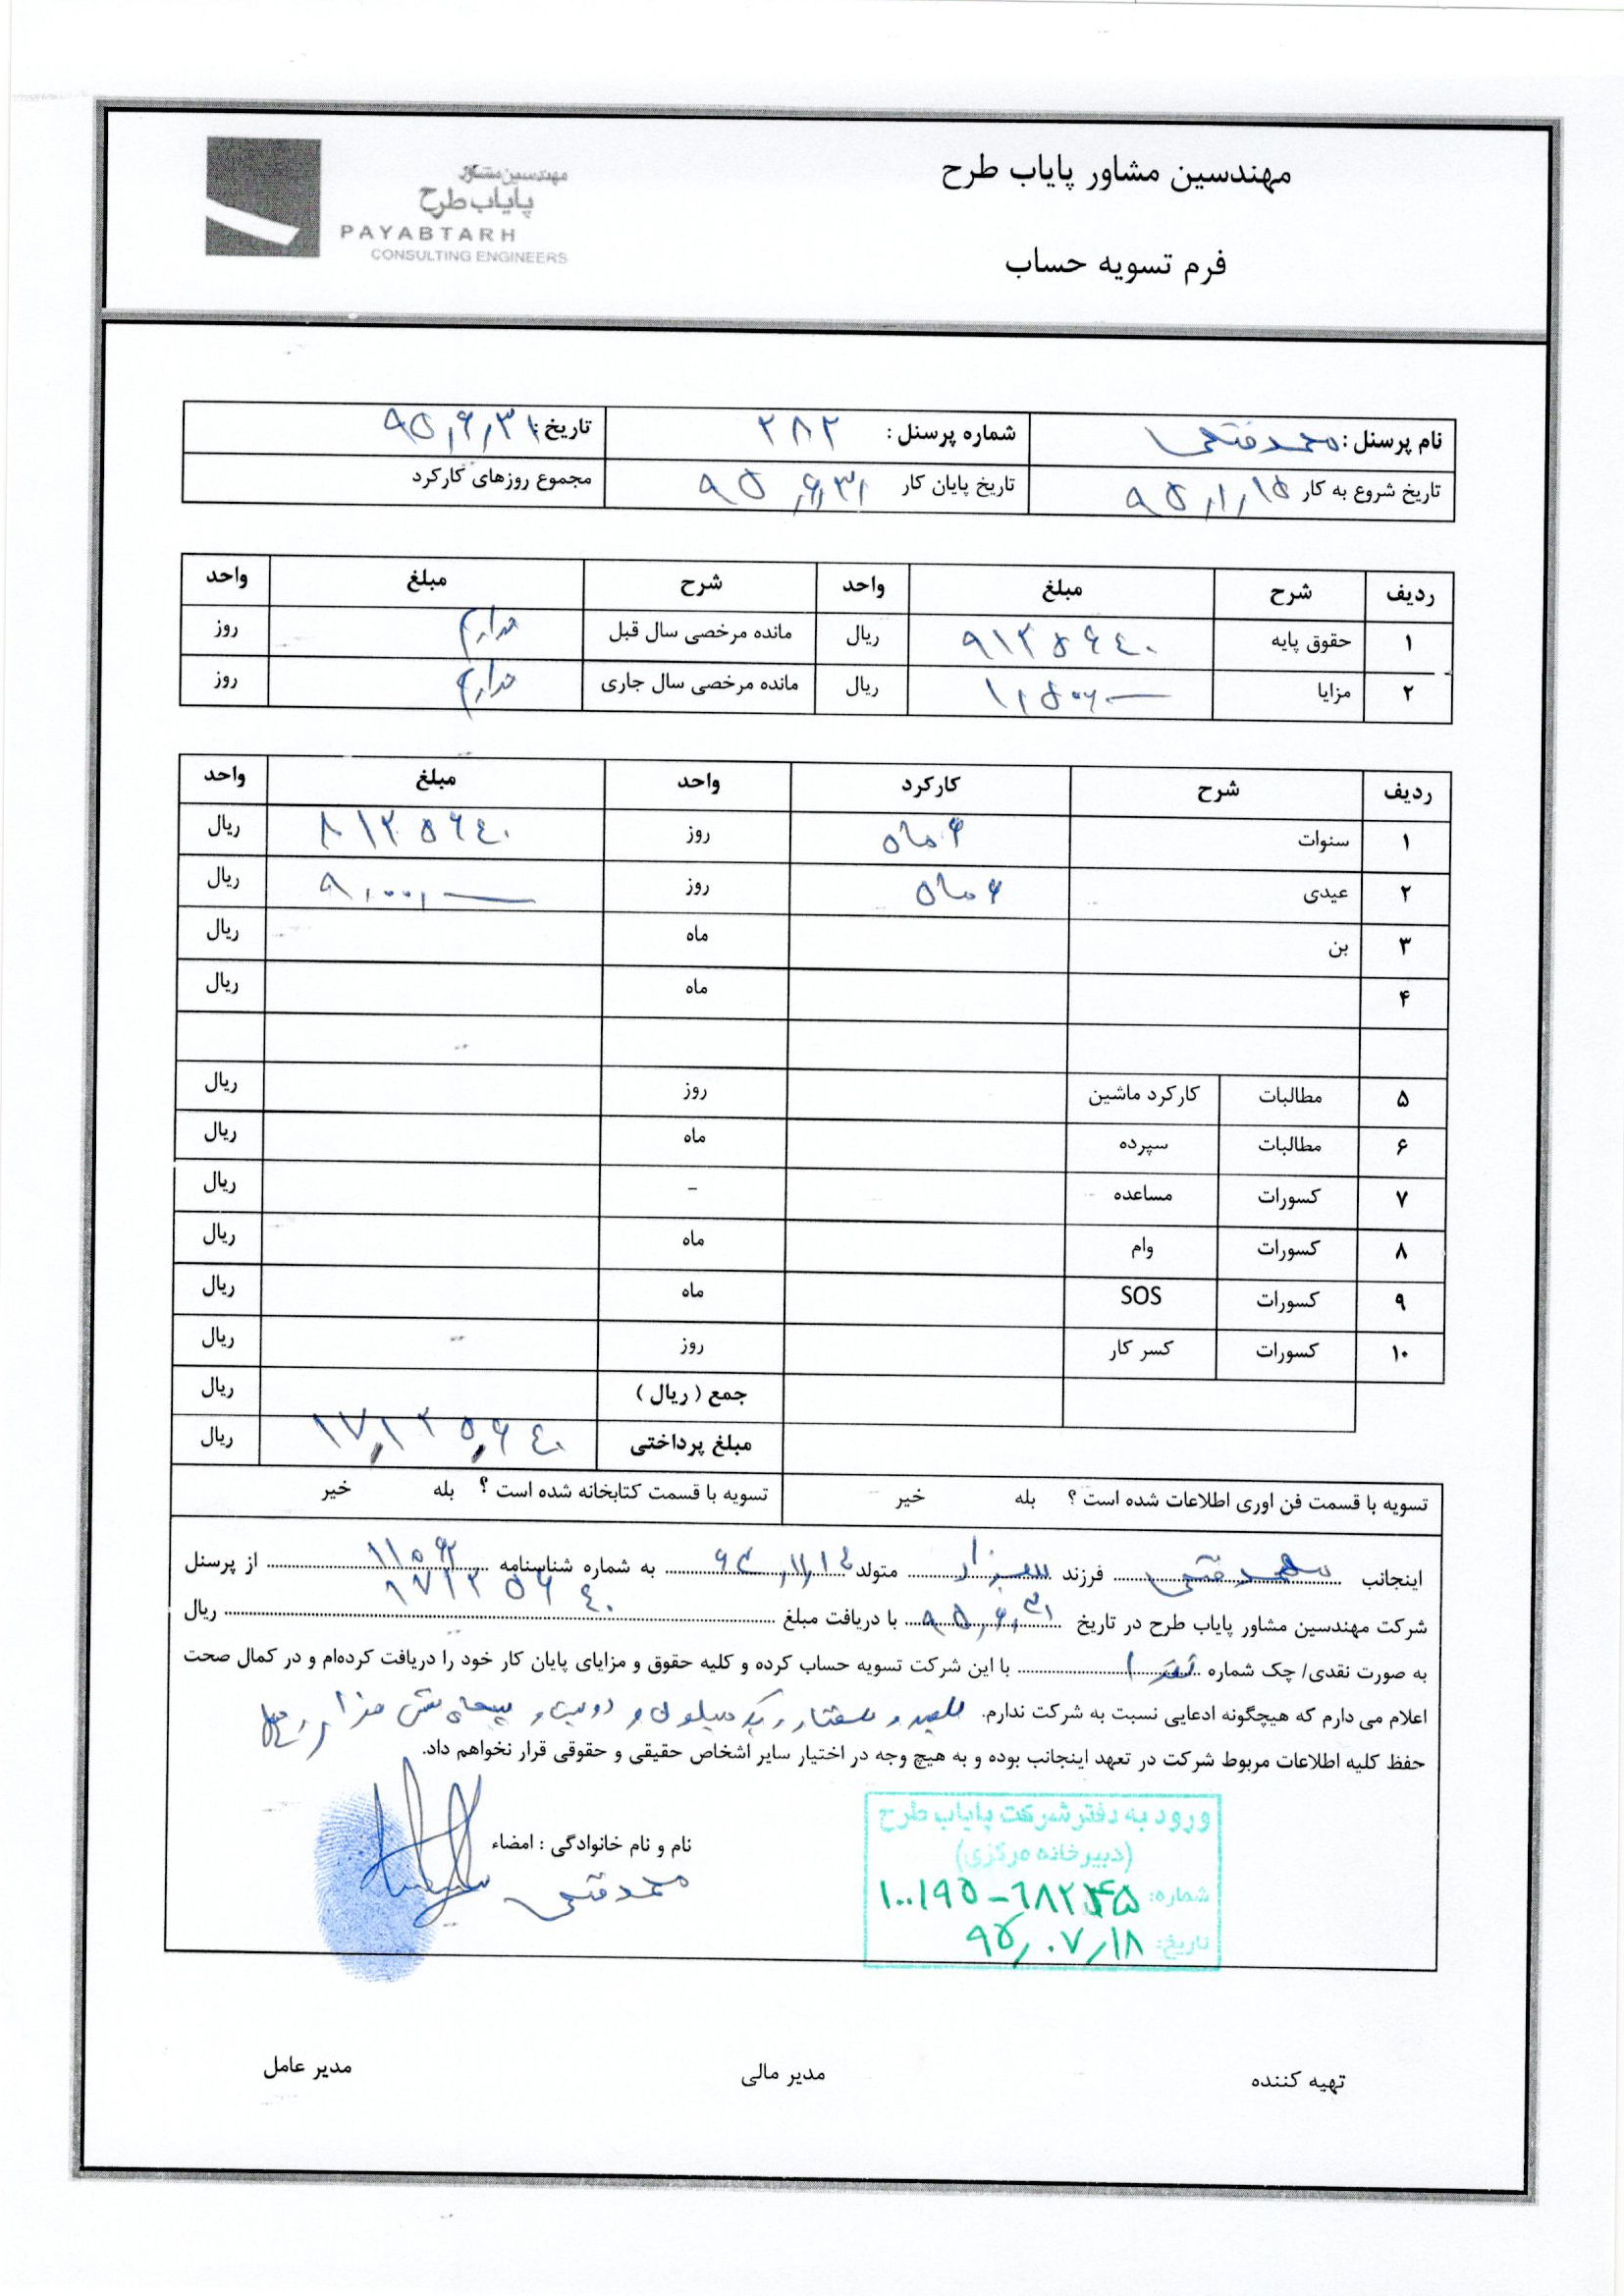 مهندسین مشاور پایاب طرح
مهندسین مشاور
پایاب طرح
PAYABTARH
CONSULTING ENGINEERS
فرم تسویه حساب
نام پرسنل : محمد فتحی شماره پرسنل : ۲۸۲ تاریخ : ۹۵/۶/۳۱
تاریخ شروع به کار ۹۵/۱/۱۵ تاریخ پایان کار ۹۵/۶/۳۱ مجموع روزهای کارکرد
ردیف شرح مبلغ واحد شرح مبلغ واحد
۱ حقوق پایه ۹۱۲۵۶۴۰ ریال مانده مرخصی سال قبل ندارم روز
۲ مزایا ریال مانده مرخصی سال جاری ندارم روز
ردیف شرح کارکرد واحد مبلغ واحد
۱ سنوات ۶ ماه روز ۸۱۲۵۶۴۰ ریال
۲ عیدی ۶ ماه روز ۹,۰۰۰,— ریال
۳ بن ماه ریال
۴ ماه ریال
۵ مطالبات کارکرد ماشین روز ریال
۶ مطالبات سپرده ماه ریال
۷ کسورات مساعده - ریال
۸ کسورات وام ماه ریال
۹ کسورات SOS ماه ریال
۱۰ کسورات کسر کار روز ریال
جمع ( ریال ) ریال
مبلغ پرداختی ۱۷,۱۲۵,۶۴۰ ریال
تسویه با قسمت فن اوری اطلاعات شده است ؟ بله خیر تسویه با قسمت کتابخانه شده است ؟ بله خیر
اینجانب محمد فتحی فرزند متولد به شماره شناسنامه ۱۱۵۶۲ از پرسنل
شرکت مهندسین مشاور پایاب طرح در تاریخ ۹۵/۶/۳۱ با دریافت مبلغ ۱۷۱۲۵۶۴۰ ریال
به صورت نقدی/ چک شماره با این شرکت تسویه حساب کرده و کلیه حقوق و مزایای پایان کار خود را دریافت کرده‌ام و در کمال صحت
اعلام می دارم که هیچگونه ادعایی نسبت به شرکت ندارم.
حفظ کلیه اطلاعات مربوط شرکت در تعهد اینجانب بوده و به هیچ وجه در اختیار سایر اشخاص حقیقی و حقوقی قرار نخواهم داد.
نام و نام خانوادگی : امضاء
محمد فتحی
ورود به دفتر شرکت پایاب طرح
(دبیرخانه مرکزی)
شماره:
تاریخ: ۹۵/۰۷/۱۸
تهیه کننده مدیر مالی مدیر عامل